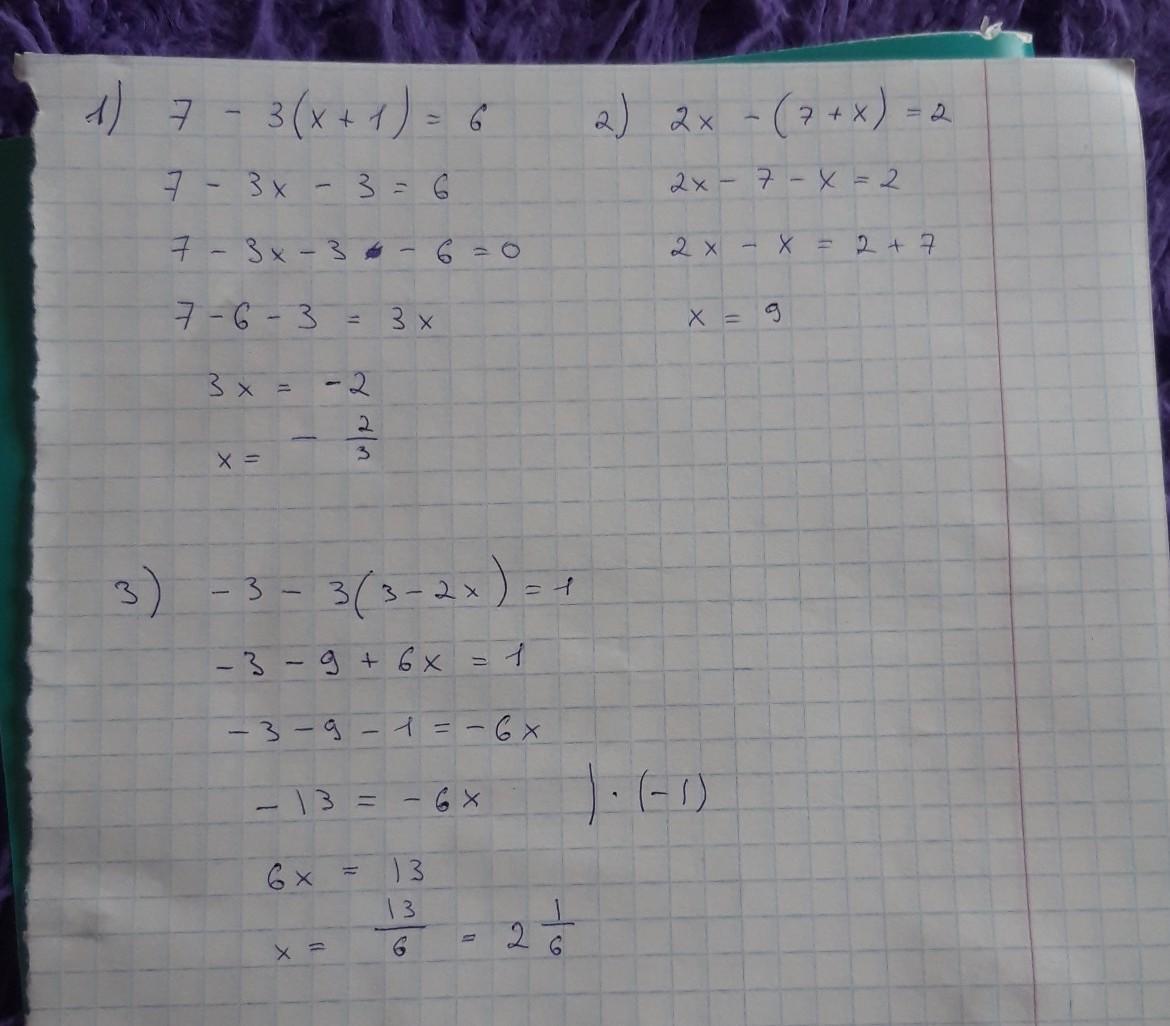 1) 7 - 3(x + 1) = 6
7 - 3x - 3 = 6
7 - 3x - 3 - 6 = 0
7 - 6 - 3 = 3x
3x = -2
x = - 2/3
2) 2x - (7 + x) = 2
2x - 7 - x = 2
2x - x = 2 + 7
x = 9
3) - 3 - 3(3 - 2x) = 1
- 3 - 9 + 6x = 1
- 3 - 9 - 1 = - 6x
- 13 = - 6x | · (- 1)
6x = 13
x = 13/6 = 2 1/6